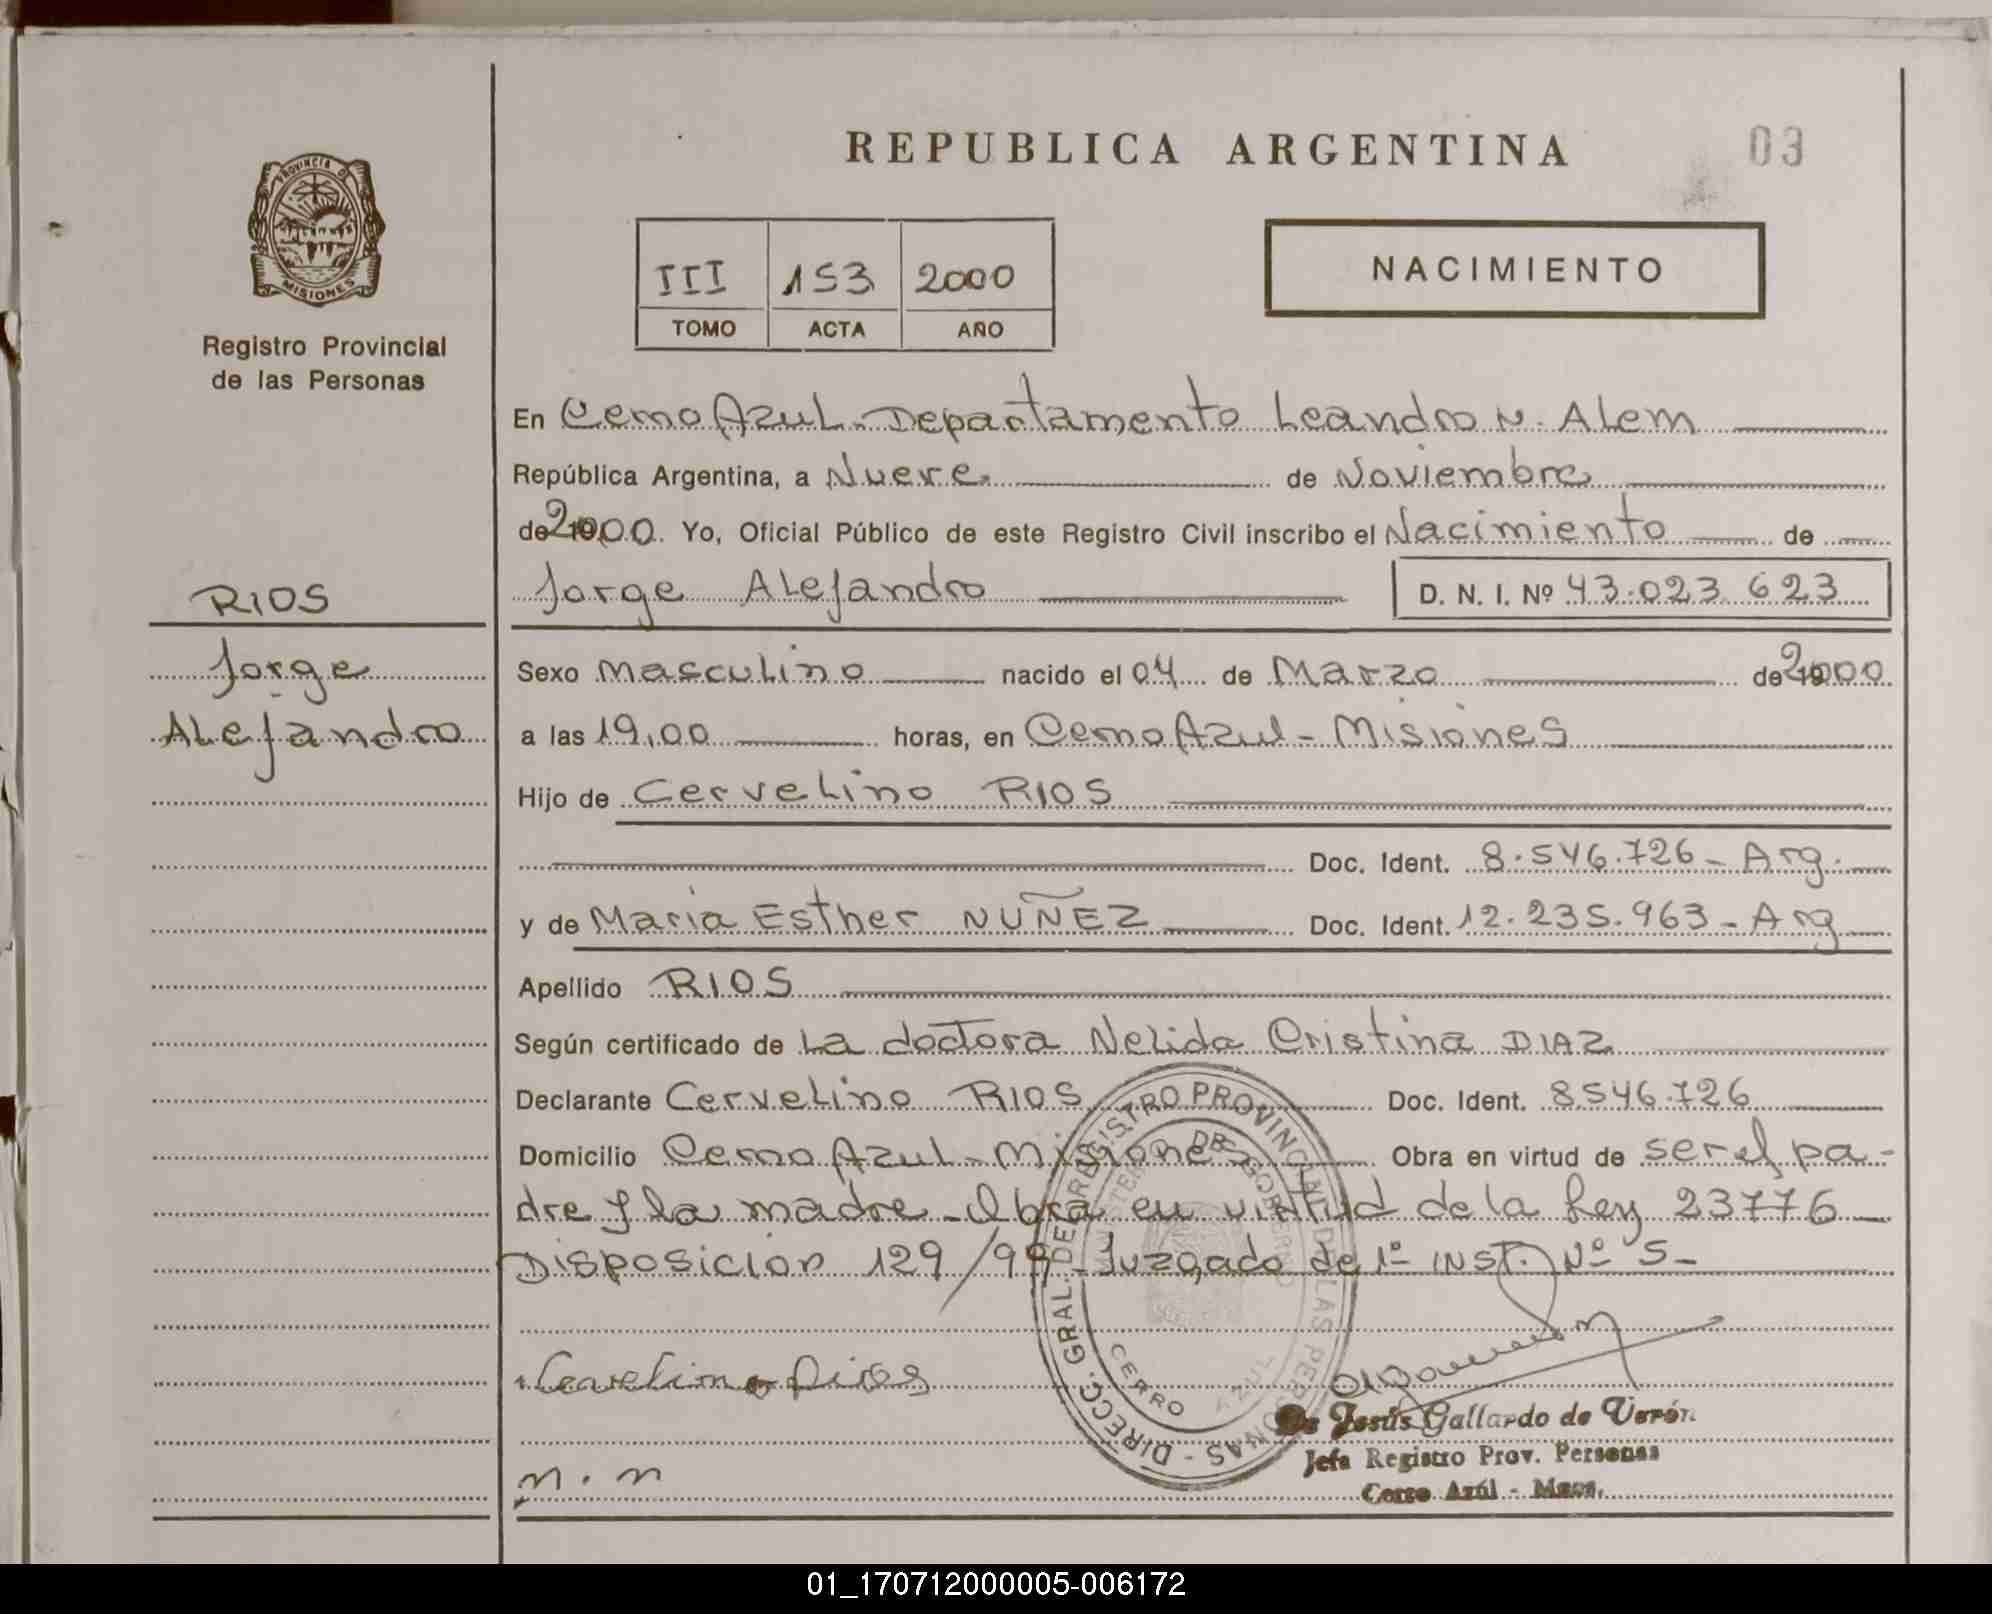 REPUBLICA ARGENTINA
03
PROVINCIA D
MISIONES
Registro Provincial
de las Personas
III 153 2000
TOMO ACTA AÑO
NACIMIENTO
En Cerro Azul - Departamento Leandro N. Alem
República Argentina, a Nueve de Noviembre
de 2000. Yo, Oficial Público de este Registro Civil inscribo el Nacimiento de
Jorge Alejandro D. N. I. Nº 43.023.623
RIOS
Jorge
Alejandro
Sexo Masculino nacido el 04 de Marzo de 2000
a las 19,00 horas, en Cerro Azul - Misiones
Hijo de Cervelino RIOS
Doc. Ident. 8.546.726 - Arg.
y de Maria Esther NUÑEZ Doc. Ident. 12.235.963 - Arg
Apellido RIOS
Según certificado de La doctora Nelida Cristina DIAZ
Declarante Cervelino RIOS Doc. Ident. 8.546.726
Domicilio Cerro Azul - Misiones Obra en virtud de ser el pa-
dre y la madre - Obra en virtud de la Ley 23776
Disposicion 129/99 - Juzgado de 1º INST. Nº 5 -
DIRECC. GRAL. DEL REGISTRO PROVINCIAL DE LAS PERSONAS -
DE GOBIERNO
CERRO AZUL
Cervelino Rios
De Jesús Gallardo de Verón
Jefa Registro Prov. Personas
Cerro Azúl - Mnes.
m . n
01_170712000005-006172